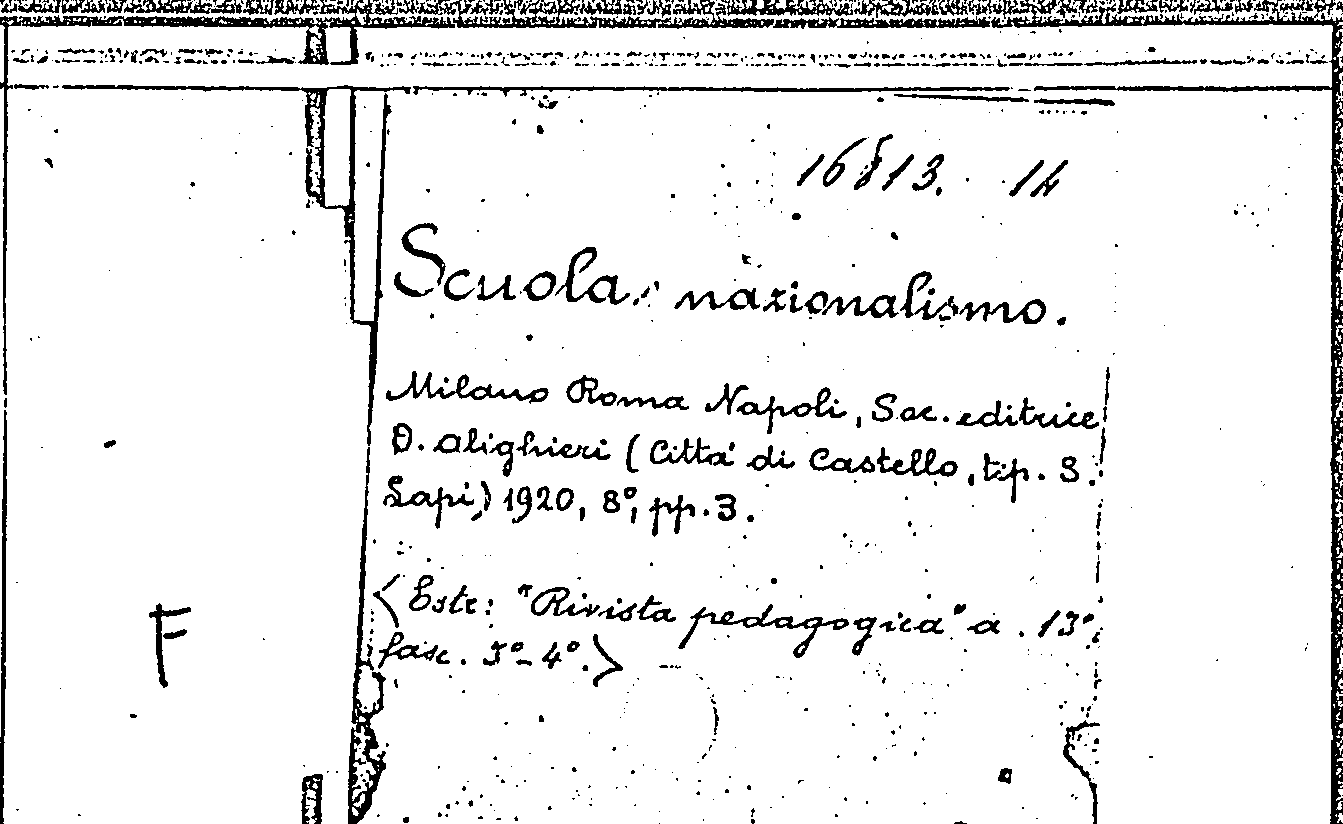 16813. 14
Scuola e nazionalismo.
Milano Roma Napoli, Soc. editrice
D. Alighieri (Città di Castello, tip. S.
Lapi) 1920, 8°, pp. 3.
<Estr: "Rivista pedagogica" a. 13°,
fasc. 3°-4°.>
F